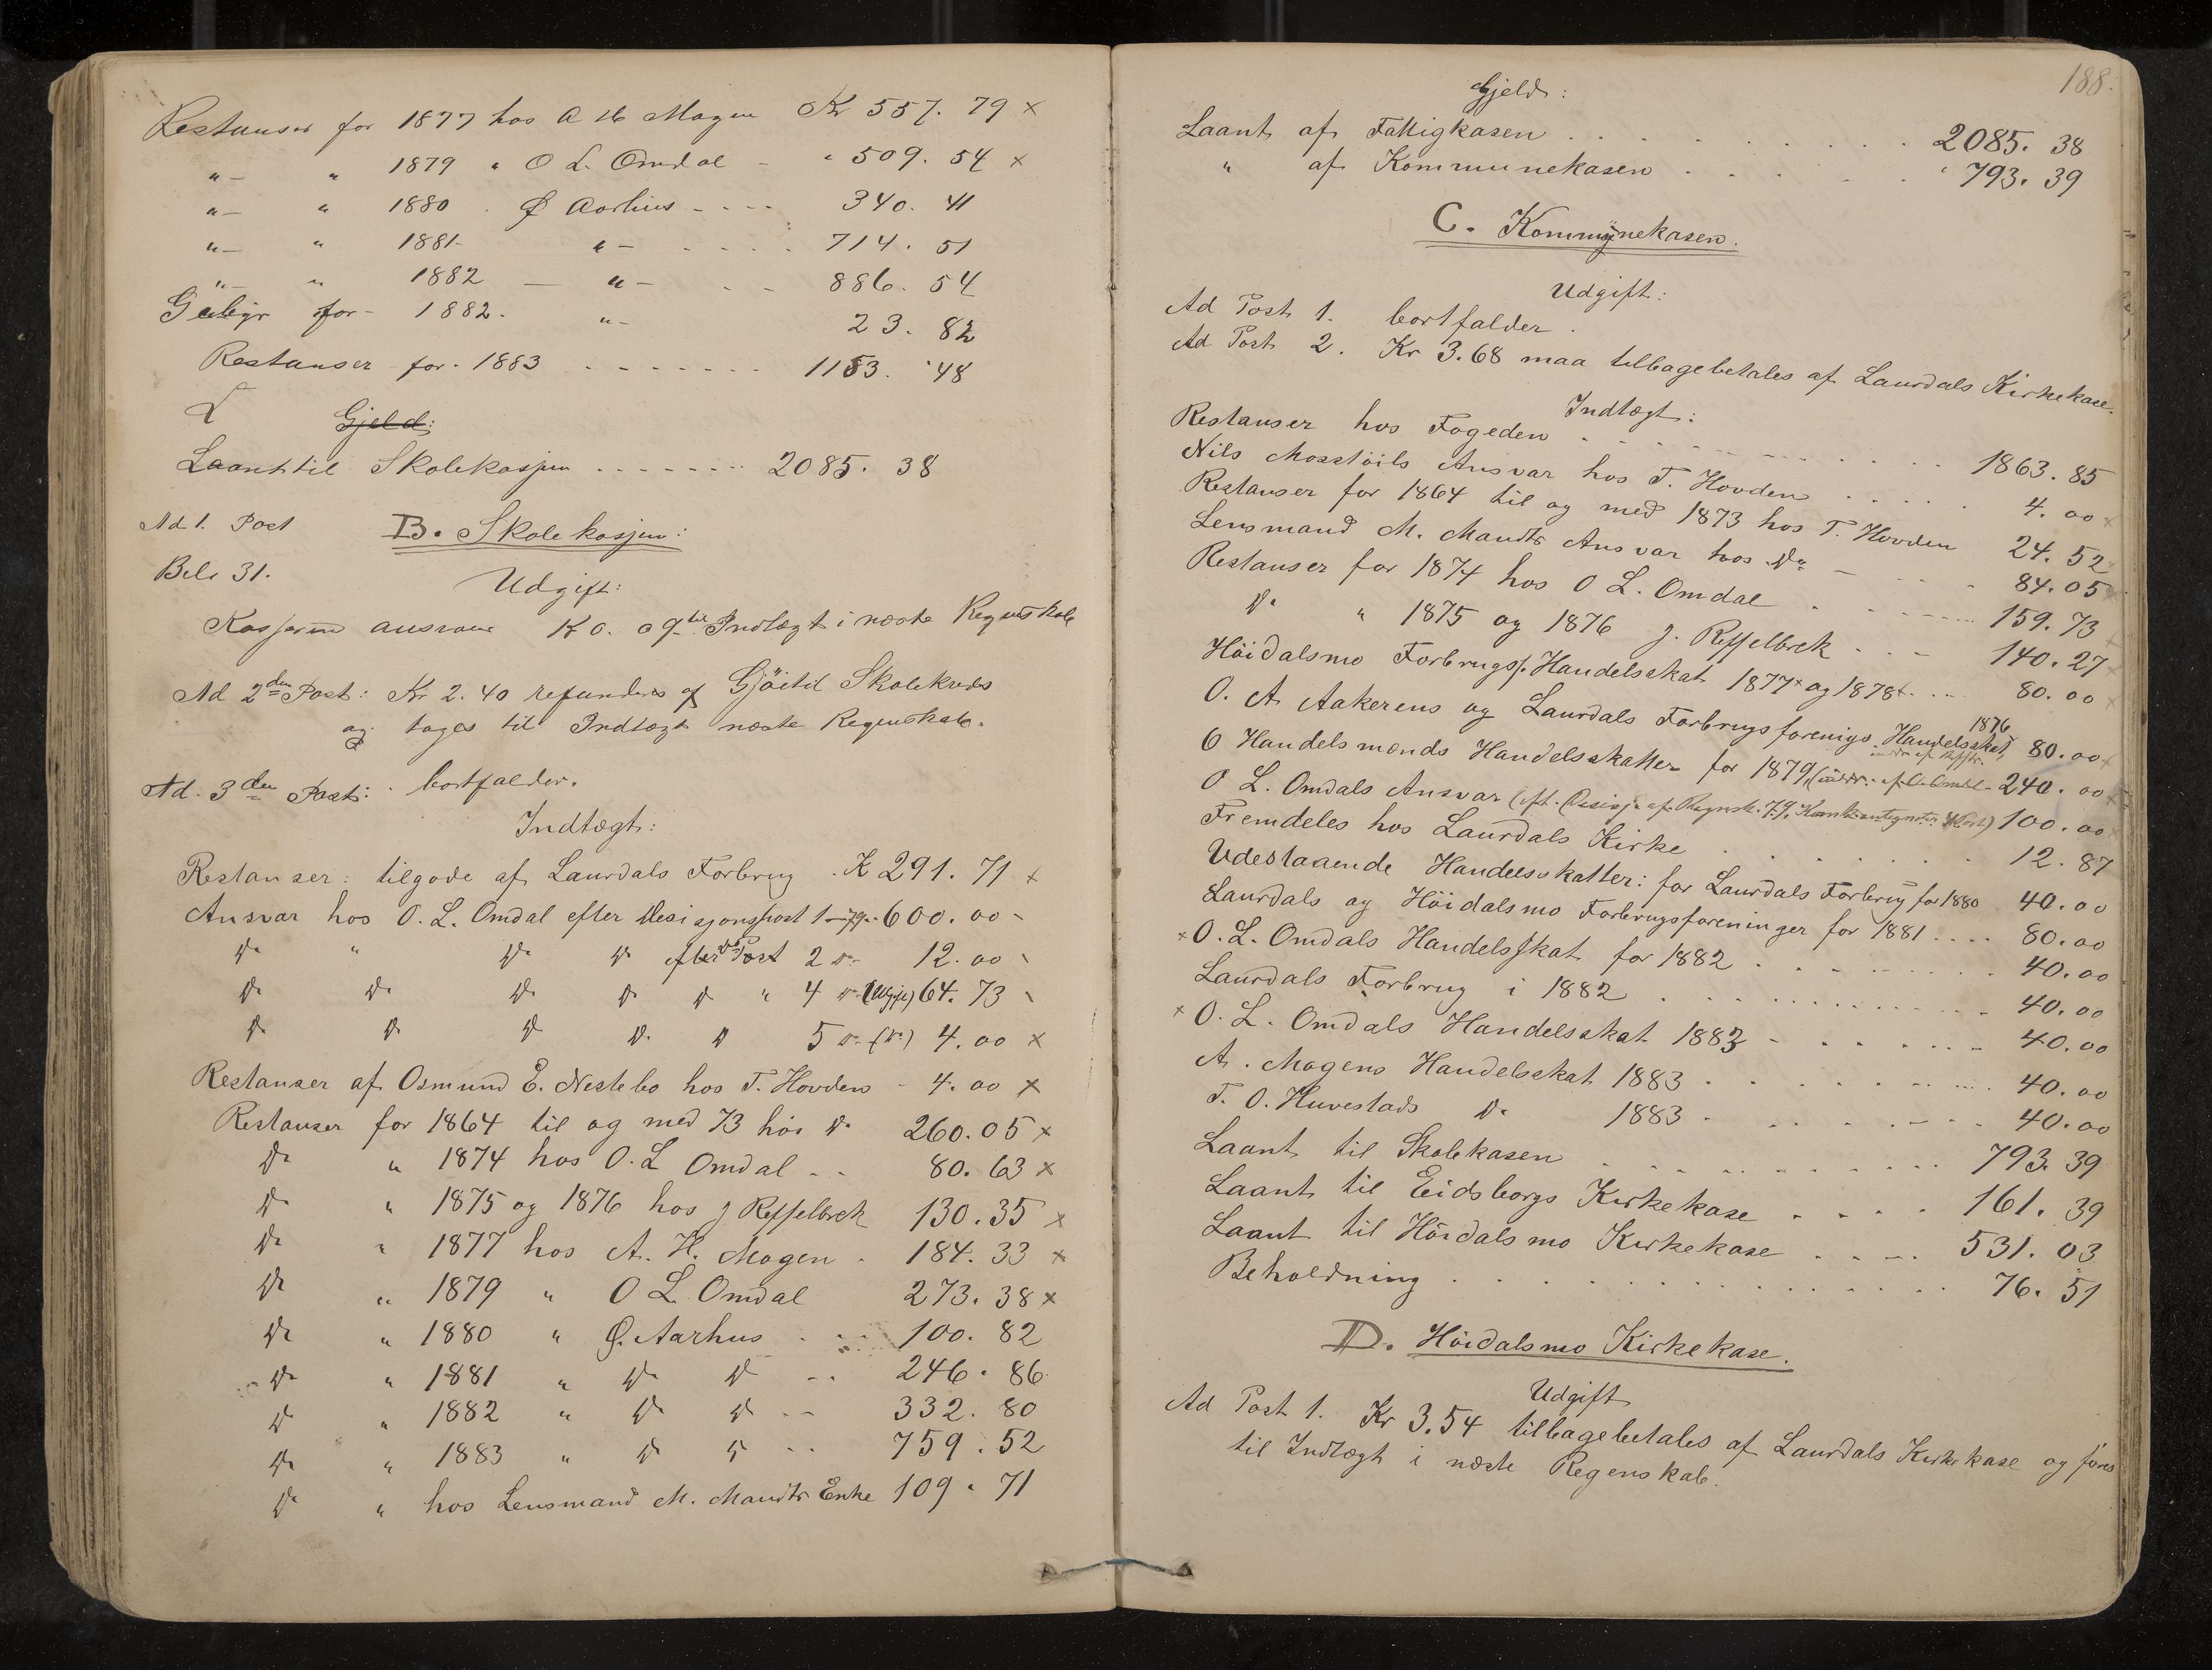 Restanser for 1877 hos A H Mogen Kr 557. 79 ×
"– " 1879 " O L. Omdal – " 509. 54 ×
"– " 1880 . Ø Aarhus - - - - 340. 41
"– " 1881- "– - - - - 714. 51
"– " 1882 — "– - - 886. 54
for - 1882. "– 23. 82
Restanser for. 1883 - - - - - - - 1153. 48
Gjeld:
Laant til Skolekassjen - - - - - - - - 2085. 38
Ad 1. Post B. Skolekassjen:
Bil. 31.
Udgift:
Kasseren ansvare K 0. 09 til Indtægt i næste Regnskab
Ad 2den Post: Kr 2.40 refunderes af Gjöitil Skolekreds
og tages til Indtægt næste Regnskab.
Ad. 3den Post: bortfalder.
Indtægt:
Restanser: tilgode af Laurdals Forbrug . K 291. 71 ×
Ansvar hos O. L. Omdal efter Desisjonspost 1 – 79 - 600. 00 -
Do " Do Do efter Do Post 2 Do 12. 00 \
Do Do Do Do Do " 4 Do (Udgift) 64. 73 \
Do Do Do Do Do 5 Do (Do) 4. 00 ×
Restanser af Osmund E. Nestebo hos T. Hovden - 4. 00 ×
Restanser for 1864 til og med 73 hos Do 260. 05 ×
Do " 1874 hos O. L Omdal - - 80. 63 ×
Do " 1875 og 1876 hos J Reffelbrek 130. 35 ×
Do " 1877 hos A. H. Mogen . 184. 33 ×
Do " 1879 " O L. Omdal 273. 38 ×
Do " 1880 " Ø. Aarhus . . . 100. 82
Do " 1881 " Do Do - - 246. 86
Do " 1882 " Do Do - - 332. 80
Do " 1883 " Do Do - - 759. 52
Do " hos Lensmand M. Mandts Enke 109. 71
188.
Gjeld:
Laant af Fattigkasen . . . . . . . . . . 2085. 38
" af Kommunekasen . . . . . " 793. 39
C. Kommunekasen.
Udgift:
Ad Post 1. bortfalder.
Ad Post 2. Kr 3.68 maa tilbagebetales af Laurdals Kirkekase.
Indtægt:
Restanser hos Fogeden . . . . . . . . . . 1863. 85
Nils Mosstöils Ansvar hos T. Hovden . . . . . 4. 00 ×
Restanser for 1864 til og med 1873 hos T. Hovden 24. 52
Lensmand M. Mandts Ansvar hos Do – - - - 84. 05 ×
Restanser for 1874 hos O L. Omdal . . - - - - 159. 73
Do " 1875 og 1876 J. Reffelbrek . . - 140. 27 ×
Höidalsmo Forbrugsf. Handelsskat 1877× og 1878× . . . 80. 00 ×
O. A Aakerens og Laurdals Forbrugsforenigs Handelsskat 1876, 80. 00 ×
6 Handelsmænds Handelsskatter for 1879, 240. 00 ×
O L. Omdals Ansvar 100. 00 ×
Fremdeles hos Laurdals Kirke . . . . . . . 12. 87
Udestaaende Handelsskatter: for Laurdals Forbrug for 1880 40. 00
Laurdals og Höidalsmo Forbrugsforeninger for 1881 . . . . 80. 00
× O. L. Omdals Handelsskat for 1882 . . . . . . . 40. 00
Laurdals Forbrug i 1882 . . . . . . . . . . 40. 00
× O. L. Omdals Handelsskat 1883 - . . . . . . 40. 00
A. Mogens Handelsskat 1883 . . . . . . . . 40. 00
T. O. Huvestads Do 1883 . . . . . . . . 40. 00
Laant til Skolekasen . . . . . . . . . . . 793. 39
Laant til Eidsborgs Kirkekase . . . . 161. 39
Laant til Höidalsmo Kirkekase . . . . . 531. 03
Beholdning . . . . . . . . . . . . . 76. 51
D. Höidalsmo Kirkekase.
Udgift
Ad Post 1. Kr 3.54 tilbagebetales af Laurdals Kirkekase og föres
til Indtægt i næste Regenskab.